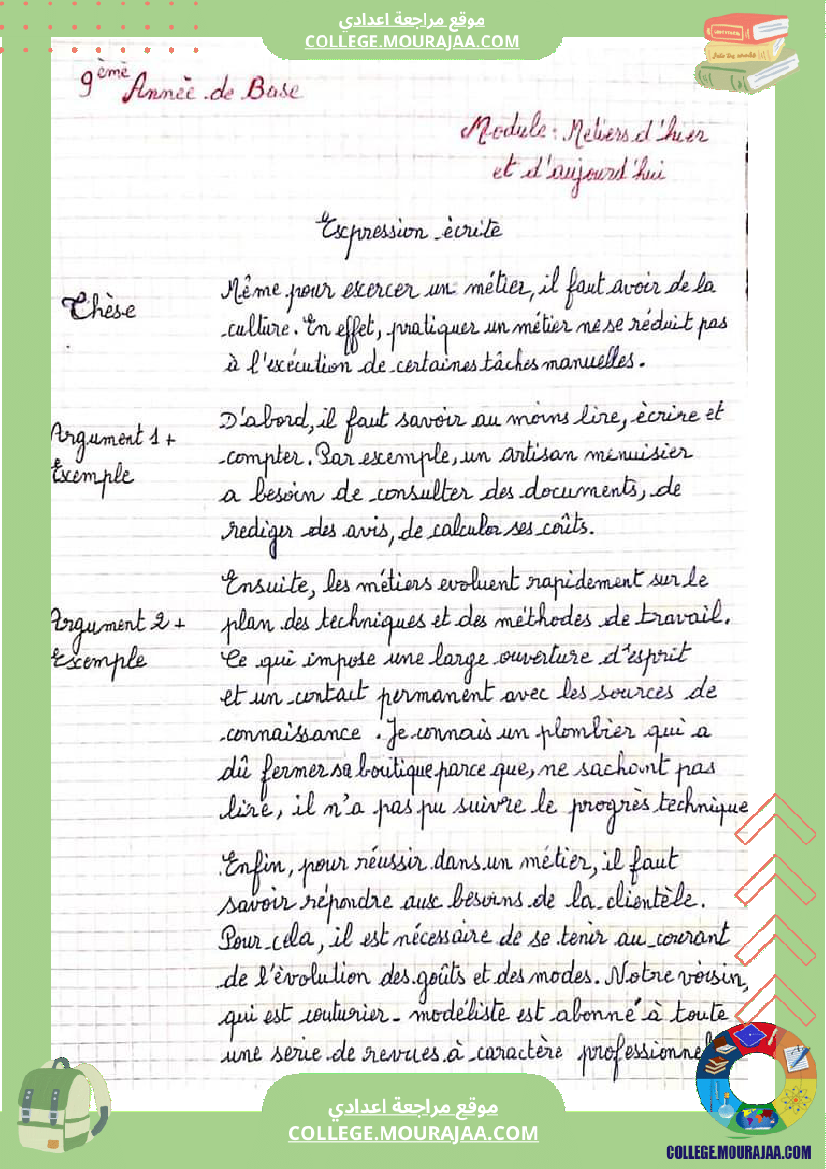 موقع مراجعة اعدادي
COLLEGE.MOURAJAA.COM
9ème Année de Base
Module : Métiers d'hier
et d'aujourd'hui
Expression écrite
Thèse
Même pour exercer un métier, il faut avoir de la
culture. En effet, pratiquer un métier ne se réduit pas
à l'exécution de certaines tâches manuelles.
Argument 1 +
Exemple
D'abord, il faut savoir au moins lire, écrire et
compter. Par exemple, un artisan menuisier
a besoin de consulter des documents, de
rediger des avis, de calculer ses coûts.
Argument 2 +
Exemple
Ensuite, les métiers evoluent rapidement sur le
plan des techniques et des méthodes de travail.
Ce qui impose une large ouverture d'esprit
et un contact permanent avec les sources de
connaissance. Je connais un plombier qui a
dû fermer sa boutique parce que, ne sachant pas
lire, il n'a pas pu suivre le progrès technique
Enfin, pour réussir dans un métier, il faut
savoir répondre aux besoins de la clientèle.
Pour cela, il est nécessaire de se tenir au courant
de l'évolution des goûts et des modes. Notre voisin,
qui est couturier - modéliste est abonné à toute
une serie de revues à caractère professionnel
موقع مراجعة اعدادي
COLLEGE.MOURAJAA.COM
COLLEGE.MOURAJAA.COM